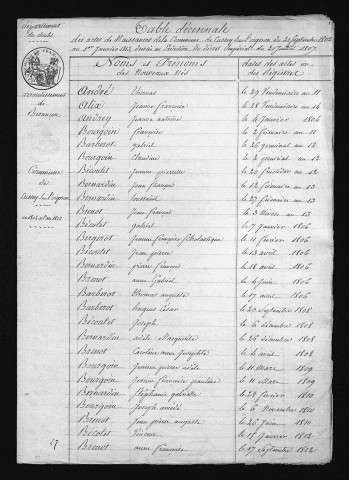 département
du doubs
arrondissement
de
Besançon
Commune
de
Cussey sur l'oignon
Table Décennale
des actes de Naissances de la Commune de Cussey sur l'oignon du 21 Septembre 1802
au 1er Janvier 1813, dressée en exécution du Décret Impérial du 20 Juillet 1807.
Noms et Prénoms des Nouveaux Nés
dates des actes et des Registres
André Thomas le 29 Vendemiaire an 11
Alix Jeanne francoise le 28 Vendemiaire an 14
Andrey Jeanne antoine le 4 Janvier 1806
Bourgoin françoise le 2 frimaire an 11
Barberot gabriel le 26 germinal an 12
Bourgoin Claudine le 2 germinal an 12
Bécoulet Jeanne pierrette le 20 fructidor an 12
Bernardin Jean françois le 12 frimaire an 13
Bernardin toussaint le 27 frimaire an 13
Brenot Jean françois le 3 Nivose an 13
Bécoulet gabriel le 7 Janvier 1806
Bergerot Jeanne françoise Scholastique le 11 fevrier 1806
Bécoulet Jean pierre le 13 avril 1806
Bernardin pierre françois le 18 avril 1806
Brenot anne Gabriel le 4 Juin 1806
Barberot Thomas auguste le 17 aout 1806
Barberot hugues Cesar le 20 Septembre 1808
Bécoulet Joseph le 6 décembre 1808
Bernardin adele Marguerite le 26 décembre 1808
Brenot Caroline anne Josephte le 4 avril 1808
Bourgoin Jeanne pierre adele le 11 Mars 1809
Bourgoin Jeanne francoise pauline le 11 Mars 1809
Bernardin Stéphanie gabrielle le 28 fevrier 1810
Bourgoin Joseph amédé le 6 Novembre 1810
Brenot Jean pierre auguste le 26 Juin 1810
Bécoulet Vincent le 18 Janvier 1812
Brenot anne francoise le 17 Septembre 1812